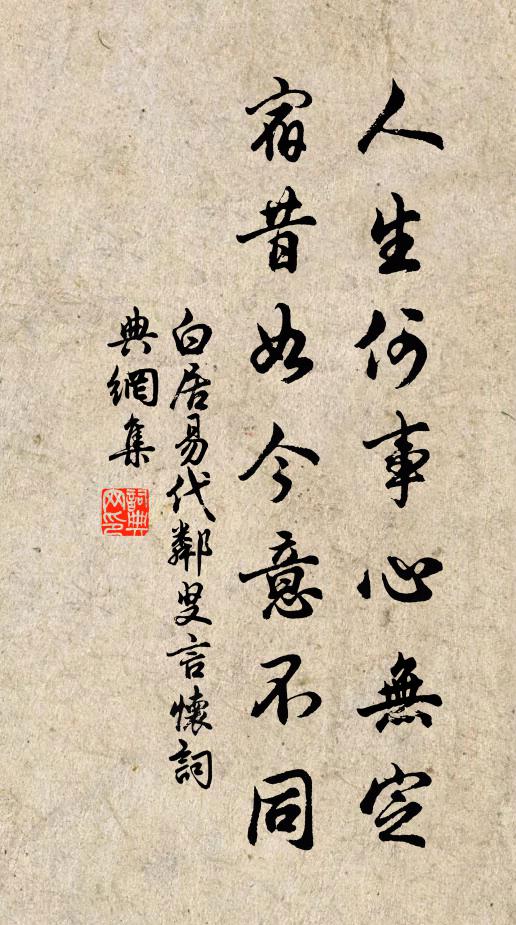 人生何事心無定
宿昔如今意不同
白居易代鄰叟言懷詞
典網集
詞典
网印